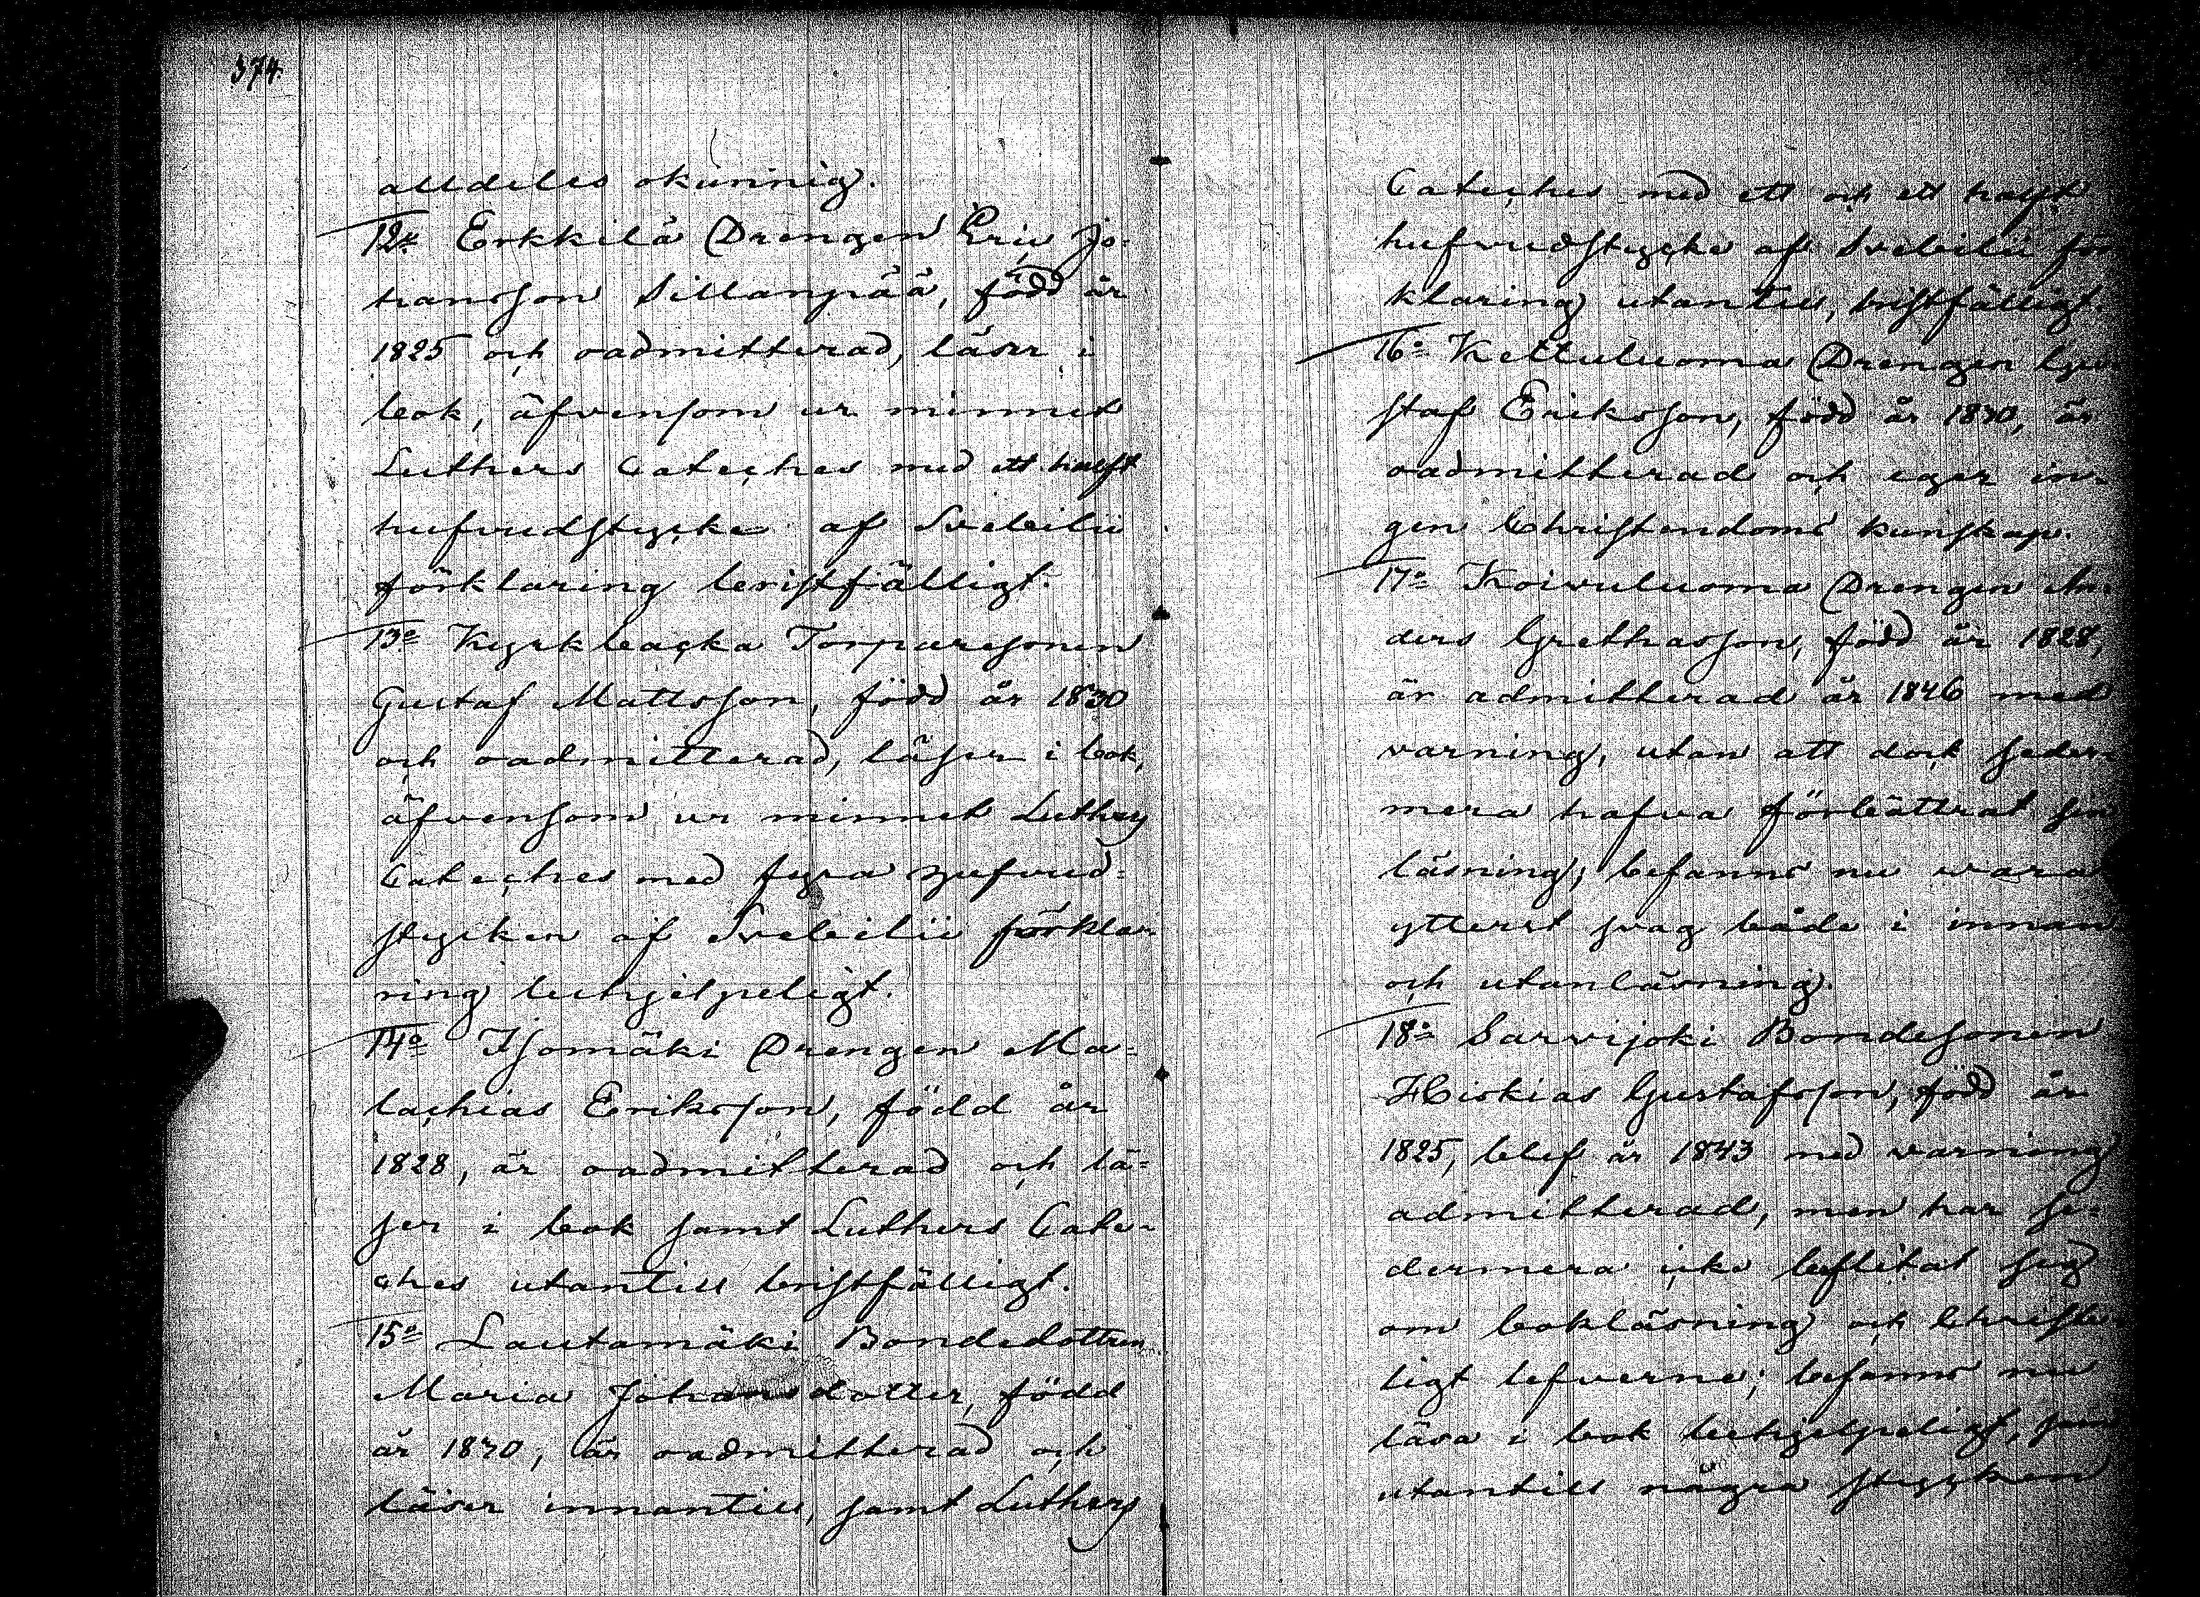 374.
alldeles okunnig.
12:o Erkkilä Drengen Eric Jo-
hansson Sillanpää, född år
1825 och oadmitterad, läser i
bok, äfvensom ur minnet
Luthers Cateches med ett halft
hufvudstycke af Svebilii
förklaring bristfälligt.
13:o Kyrkbacka Torparesonen
Gustaf Mattsson, född år 1830
och oadmitterad, läser i bok,
äfvensom ur minnet Luthers
Cateches med fyra hufvud-
stycken af Svebilii förkla-
ring behjelpeligt.
14:o Isomäki Drengen Ma-
lachias Eriksson, född år
1828, är oadmitterad och lä-
ser i bok samt Luthers Cate-
ches utantill bristfälligt.
15:o Lautamäki Bondedottren
Maria Johansdotter, född
år 1830, är oadmitterad och
läser innantill, samt Luthers
Cateches med ett och ett halft
hufvudstycke af Svebilii för
klaring utantill, bristfälligt.
16:o Ketluluoma Drengen Gu-
staf Eriksson, född år 1830, är
oadmitterad och eger in-
gen Christendoms kunskap.
17:o Koivuluoma Drengen An-
ders Grethasson, född år 1828,
är admitterad år 1846 med
varning, utan att dock seder-
mera hafva förbättrat sin
läsning; befanns nu vara
ytterst svag både i innan
och utanläsning.
18:o Sarvijoki Bondesonen
Hiskias Gustafsson, född år
1825, blef år 1843 med varning
admitterad, men har se-
dermera icke beflitat sig
om bokläsning och Christe-
ligt lefverne; befanns nu
läsa i bok behjelpeligt, samt
utantill några stycken